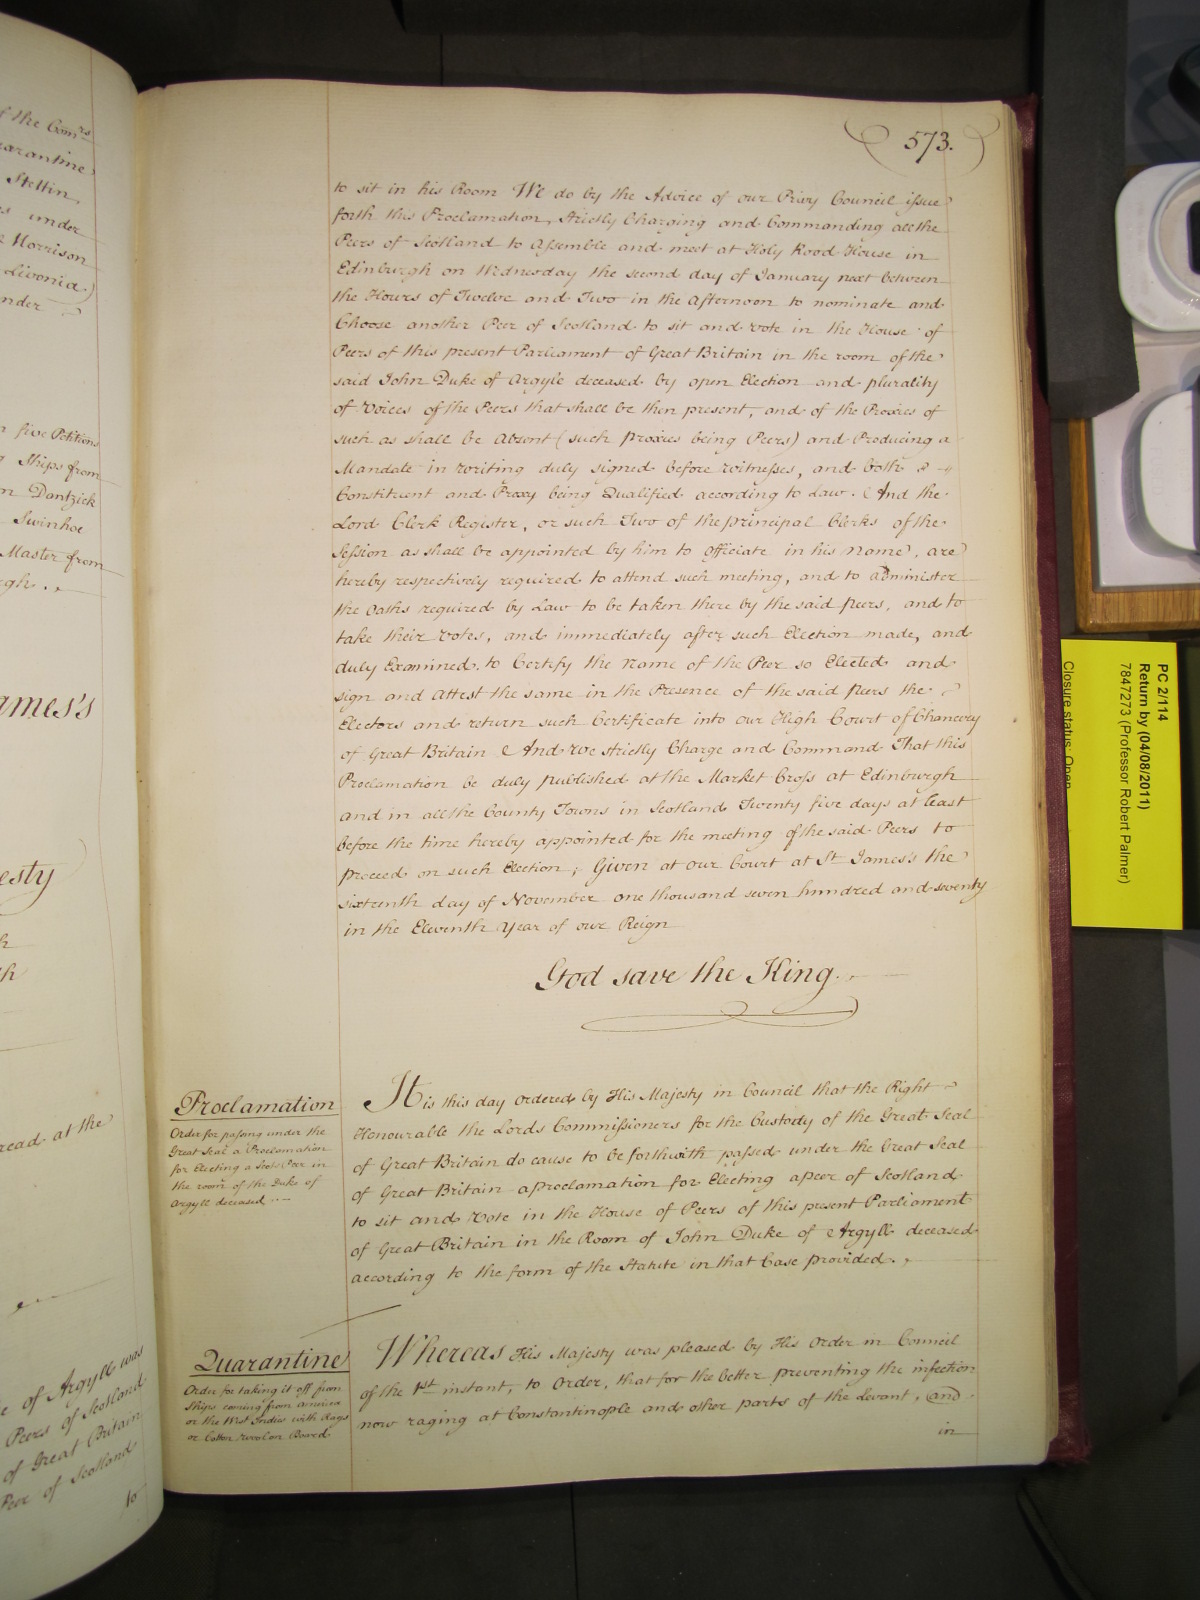 f the Com.rs
uarantine
Stettin,
s under
Morrison
Livonia)
nder
n five Petitions
g Ships from
m Dantzick
Swinhoe
Master from
gh..
ames's
esty
h
th
read at the
e of Argyll was
Peers of Scotland
of Great Britain
Peer of Scotland
to
573.
to sit in his Room We do by the Advice of our Privy Council issue
forth this Proclamation, strictly Charging and Commanding all the
Peers of Scotland to Assemble and meet at Holy Rood House in
Edinburgh on Wednesday the second day of January next between
the Hours of Twelve and Two in the Afternoon to nominate and
Choose another Peer of Scotland to sit and vote in the House of
Peers of this present Parliament of Great Britain in the room of the
said John Duke of Argyle deceased by open Election and plurality
of Voices of the Peers that shall be then present, and of the Proxies of
such as shall be Absent (such proxies being Peers) and Producing a
Mandate in writing duly signed before witnesses, and both
Constituent and Proxy being Qualified according to Law. And the
Lord Clerk Register, or such Two of the principal Clerks of the
Session as shall be appointed by him to officiate in his name, are
hereby respectively required to attend such meeting, and to administer
the Oaths required by Law to be taken there by the said peers, and to
take their votes, and immediately after such Election made, and
duly Examined, to Certify the name of the Peer so Elected and
sign and Attest the same in the Presence of the said Peers the
Electors and return such Certificate into our High Court of Chancery
of Great Britain And We strictly Charge and Command That this
Proclamation be duly published at the Market Cross at Edinburgh
and in all the County Towns in Scotland Twenty five days at least
before the time hereby appointed for the meeting of the said Peers to
proceed on such Election; Given at our Court at St. James's the
sixteenth day of November one thousand seven hundred and seventy
in the Eleventh Year of our Reign
God save the King.
Proclamation
Order for passing under the
Great Seal a Proclamation
for Electing a Scots Peer in
the room of the Duke of
Argyll deceased
It is this day ordered by His Majesty in Council that the Right
Honourable the Lords Commissioners for the Custody of the Great Seal
of Great Britain do cause to be forthwith passed under the Great Seal
of Great Britain a proclamation for Electing a peer of Scotland
to sit and Vote in the House of Peers of this present Parliament
of Great Britain in the Room of John Duke of Argyll deceased
according to the form of the Statute in that Case provided.
Quarantine
Order for taking it off from
Ships coming from America
or the West Indies with Rags
or Cotton wool on Board
Whereas His Majesty was pleased by His Order in Council
of the 1st. instant, to Order, that for the better preventing the infection
now raging at Constantinople and other parts of the Levant, and
in
PC 2/114
Return by (04/08/2011)
7847273 (Professor Robert Palmer)
Closure status: Open